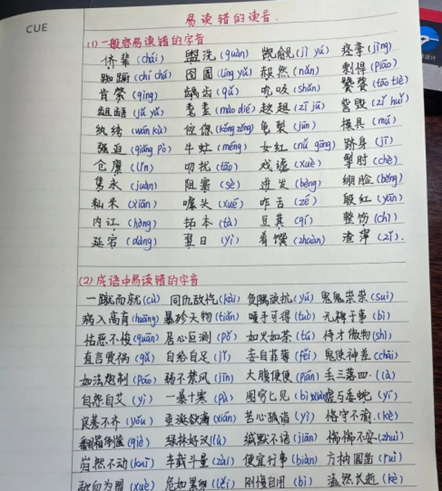 CUE
易读错的读音.
(1) 一般容易读错的字音
侪辈 (chái) 盥洗 (guàn) 觊觎 (jì yú) 痉挛 (jìng)
踟蹰 (chí chú) 囹圄 (líng yǔ) 赧然 (nǎn) 剽悍 (piāo)
肯綮 (qìng) 龋齿 (qǔ) 吮吸 (shǔn) 饕餮 (tāo tiè)
龃龉 (jǔ yǔ) 耄耋 (mào dié) 趑趄 (zī jū) 訾毁 (zǐ huǐ)
纨绔 (wán kù) 倥偬 (kǒng zǒng) 龟裂 (jūn) 模具 (mú)
强迫 (qiǎng pò) 牛虻 (méng) 女红 (nǚ gōng) 跻身 (jī)
仓廪 (lǐn) 叨扰 (tāo) 戏谑 (xuè) 掣肘 (chè)
隽永 (juàn) 阻塞 (sè) 迸发 (bèng) 绷脸 (běng)
籼米 (xiān) 噱头 (xué) 咋舌 (zé) 殷红 (yān)
内讧 (hòng) 拓本 (tà) 豆萁 (qí) 整饬 (chì)
延宕 (dàng) 翌日 (yì) 肴馔 (zhuàn) 渣滓 (zǐ).
(2) 成语中易读错的字音
一蹴而就 (cù) 同仇敌忾 (kài) 负隅顽抗 (yú) 鬼鬼祟祟 (suì)
病入膏肓 (huāng) 暴殄天物 (tiǎn) 唾手可得 (tuò) 无稗于事 (bì)
怙恶不悛 (quān) 居心叵测 (pǒ) 如火如荼 (tú) 恃才傲物 (shì)
直言贾祸 (gǔ) 自给自足 (jǐ) 妄自菲薄 (fěi) 鬼使神差 (chāi)
如法炮制 (páo) 弱不禁风 (jīn) 大腹便便 (pián) 丢三落四. (là)
自怨自艾 (yì) 一暴十寒 (pù) 图穷匕见 (bǐ xiàn) 虚与委蛇 (yí)
良莠不齐 (yǒu) 垂涎欲滴 (xián) 苦心孤诣 (yì) 恪守不渝. (kè)
翻箱倒箧 (qiè) 绿林好汉 (lù) 缄默不语 (jiān) 惴惴不安 (zhuì)
岿然不动 (kuī) 车载斗量 (zài) 便宜行事 (biàn) 方枘圆凿 (ruì)
危如累卵 (lěi) 刚愎自用 (bì) 溘然长逝 (kè)